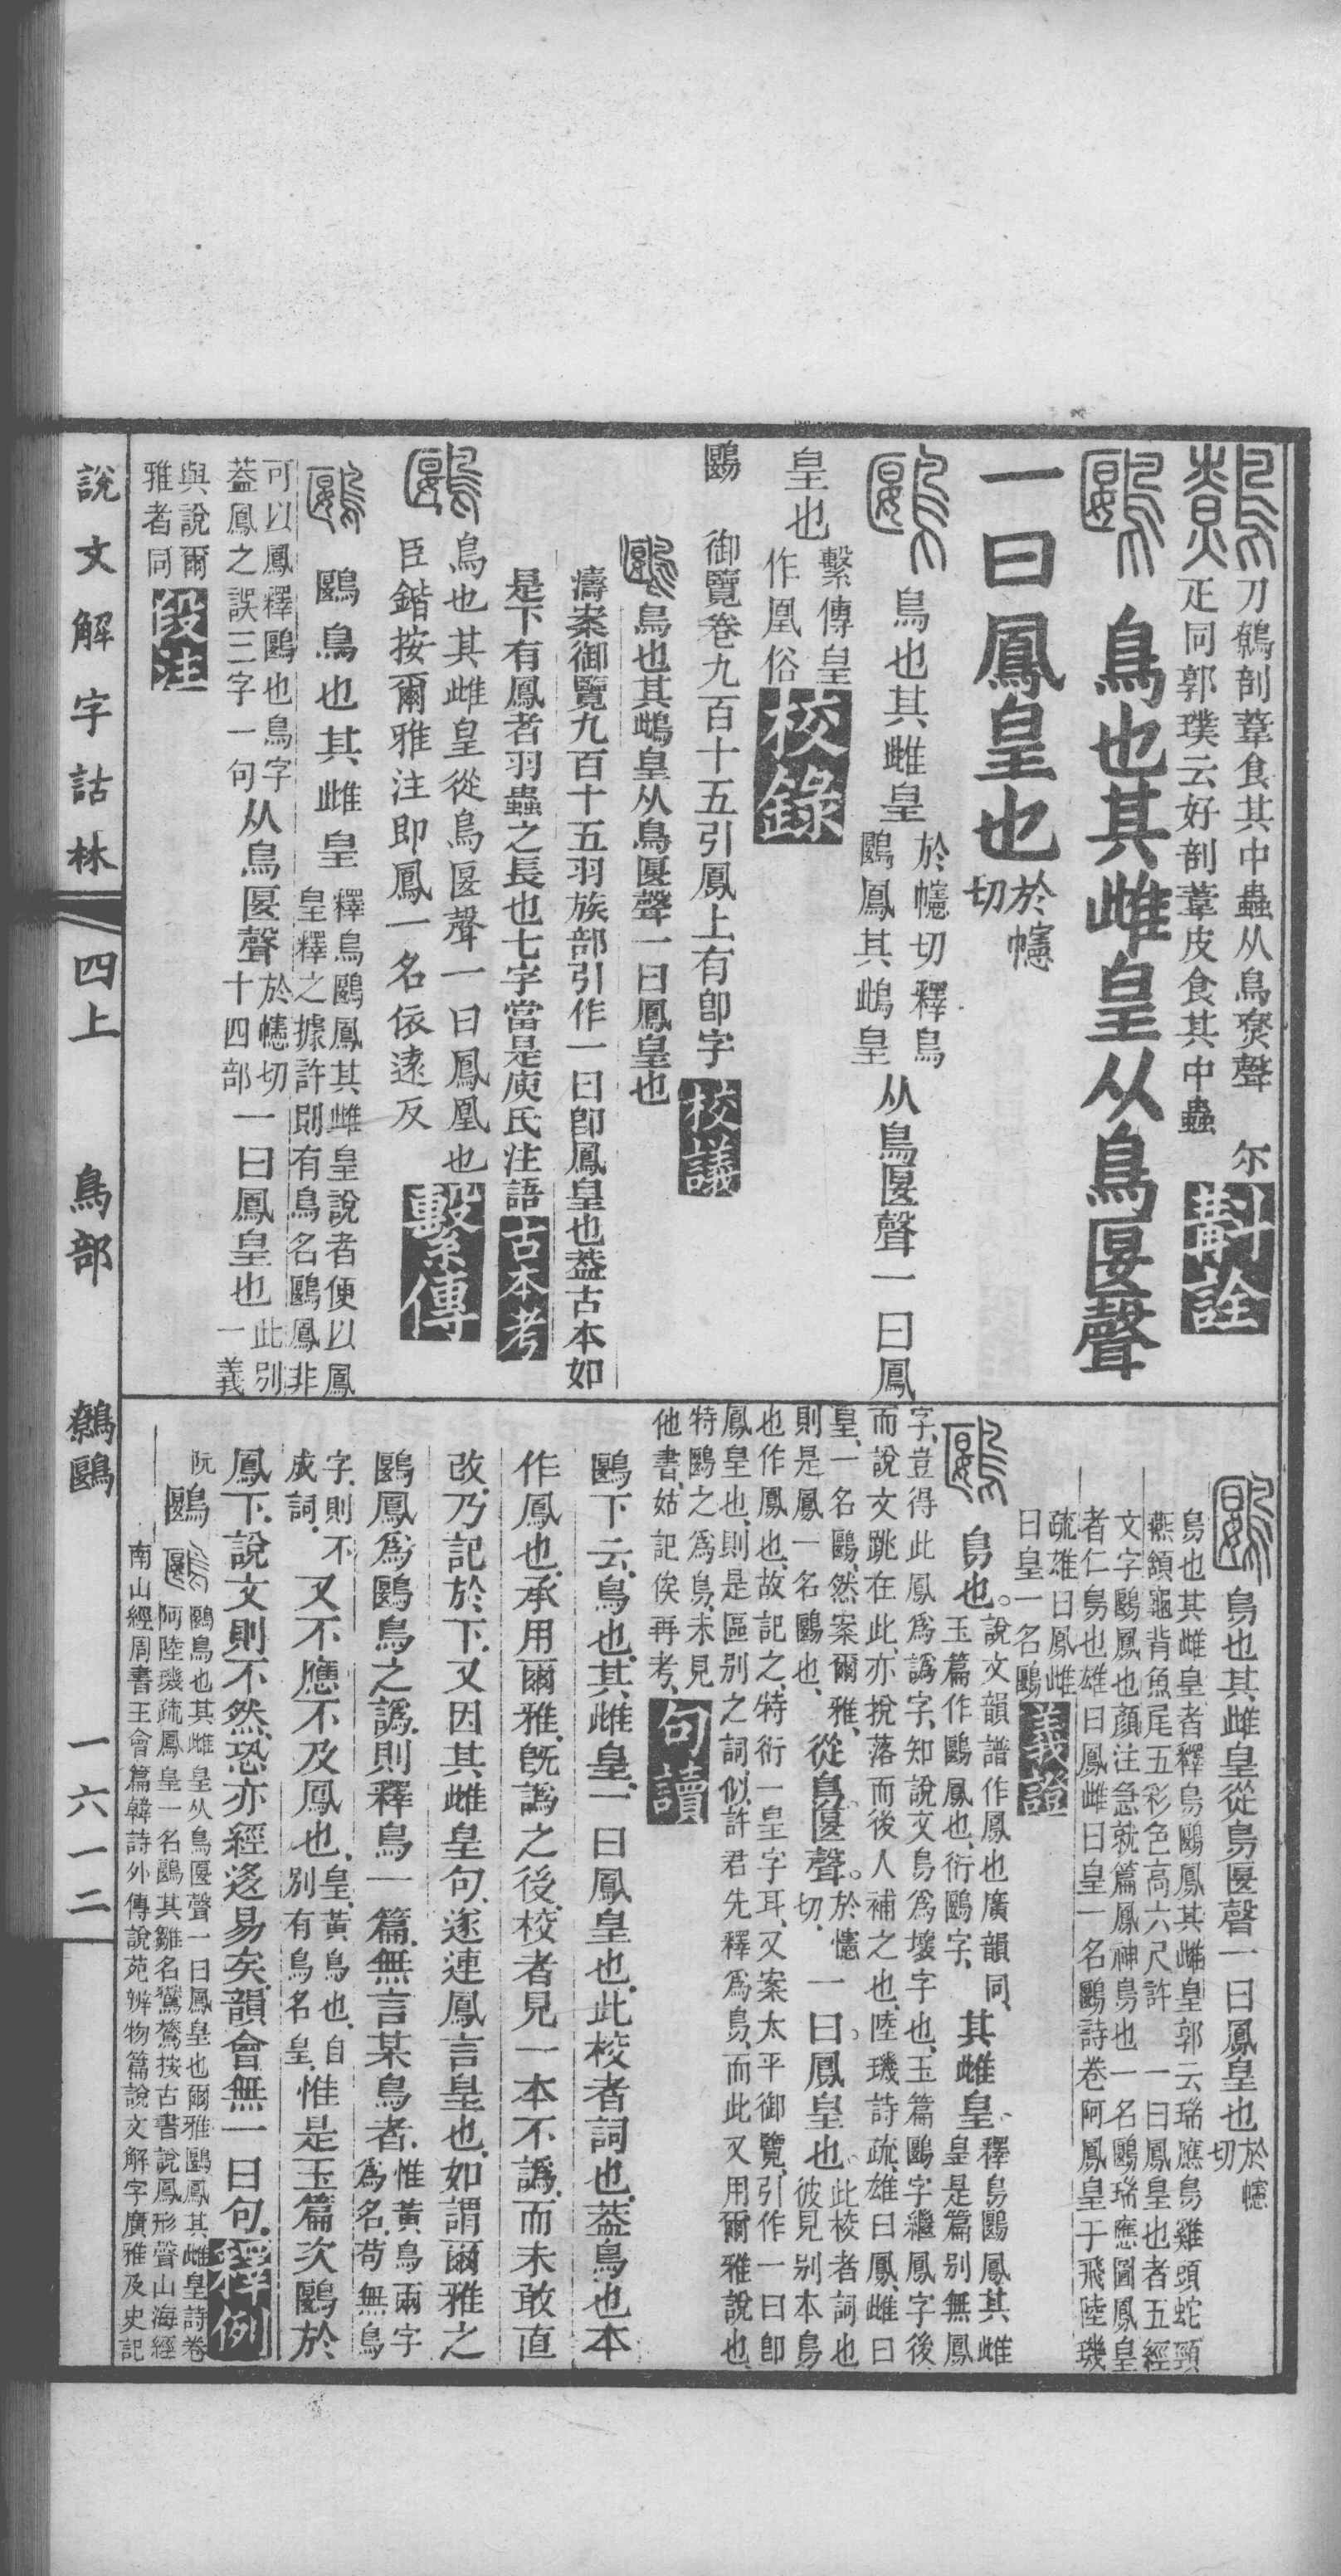 刀鷯剖葦食其中蟲从鳥尞聲
疋同郭璞云好剖葦皮食其中蟲
尔 斠詮
鳥也其雌皇从鳥匽聲
一曰鳳皇也 於幰切
鳥也其雌皇 於幰切釋鳥
鶠鳳其鴟皇 从鳥匽聲一曰鳳
皇也 繫傳皇
作凰俗 校錄
鶠 御覽卷九百十五引鳳上有卽字 校議
鳥也其鴟皇从鳥匽聲一曰鳳皇也
濤案御覽九百十五羽族部引作一曰卽鳳皇也葢古本如
是下有鳳者羽蟲之長也七字當是庾氏注語 古本考
鳥也其雌皇從鳥匽聲一曰鳳凰也
臣鍇按爾雅注即鳳一名依遠反 繫傳
鶠鳥也其雌皇 釋鳥鶠鳳其雌皇說者便以鳳
皇釋之據許則有鳥名鶠鳳非
可以鳳釋鶠也鳥字
葢鳳之誤三字一句 从鳥匽聲 於幰切
十四部 一曰鳳皇也 此別
一義
與說爾
雅者同 段注
鳥也其雌皇從鳥匽聲一曰鳳皇也 於幰
切
鳥也其雌皇者釋鳥鶠鳳其雌皇郭云瑞應鳥雞頭蛇頸
燕頷龜背魚尾五彩色高六尺許 一曰鳳皇也者五經
文字鶠鳳也顏注急就篇鳳神鳥也一名鶠瑞應圖鳳皇
者仁鳥也雄曰鳳雌曰皇一名鶠詩卷阿鳳皇于飛陸璣
疏雄曰鳳雌
曰皇一名鶠 義證
鳥也。 說文韻譜作鳳也廣韻同、
玉篇作鶠鳳也、衍鶠字、 其雌皇、 釋鳥鶠鳳其雌
皇是篇別無鳳
字、豈得此鳳爲譌字、知說文鳥爲壞字也、玉篇鶠字繼鳳字後、
而說文跳在此、亦挩落而後人補之也、陸璣詩疏、雄曰鳳、雌曰
皇、一名鶠、然案爾雅、
則是鳳一名鶠也、 從鳥匽聲。 於幰
切、 一曰鳳皇也。 此校者詞也
彼見別本鳥
也作鳳也、故記之、特衍一皇字耳、又案太平御覽、引作一曰卽
鳳皇也、則是區別之詞、似許君先釋爲鳥、而此又用爾雅說也、
特鶠之爲鳥、未見
他書、姑記俟再考、 句讀
鶠下云、鳥也、其雌皇、一曰鳳皇也、此校者詞也、葢鳥也本
作鳳也、承用爾雅、旣譌之後、校者見一本不譌、而未敢直
改、乃記於下、又因其雌皇句、遂連鳳言皇也、如謂爾雅之
鶠鳳爲鶠鳥之譌、則釋鳥一篇、無言某鳥者、 惟黃鳥兩字
爲名、苟無鳥
字、則不
成詞、 又不應不及鳳也、 皇、黃鳥也、自
別有鳥名皇、 惟是玉篇次鶠於
鳳下、說文則不然、恐亦經迻易矣、韻會無一曰句、 釋例
阮
鶠 鶠鳥也其雌皇从鳥匽聲一曰鳳皇也爾雅鶠鳳其雌皇詩卷
阿陸璣疏鳳皇一名鶠其雛名鸑鷟按古書說鳳形聲山海經
南山經周書王會篇韓詩外傳說苑辨物篇說文解字廣雅及史記
說文解字詁林 四上 鳥部 鷯鶠 一六一二